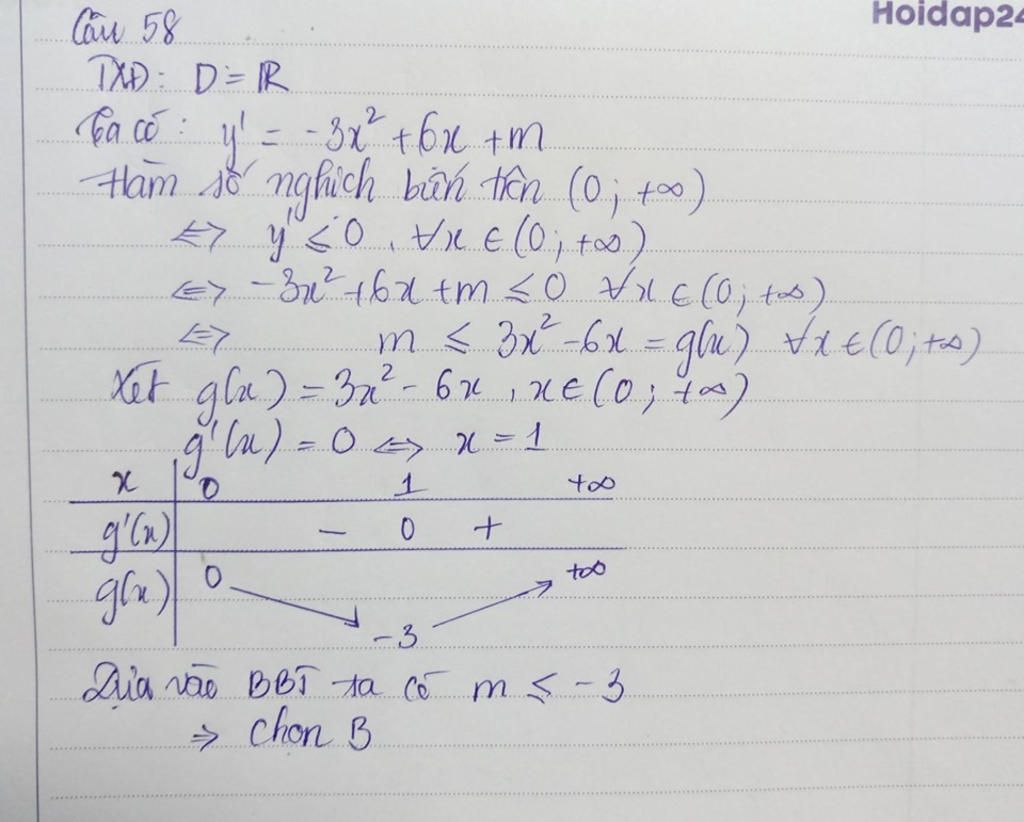 Hoidap24
Câu 58
TXĐ: D = ℝ
Ta có: y' = -3x² + 6x + m
Hàm số nghịch biến trên (0; +∞)
⇔ y' ≤ 0, ∀x ∈ (0; +∞)
⇔ -3x² + 6x + m ≤ 0 ∀x ∈ (0; +∞)
⇔ m ≤ 3x² - 6x = g(x) ∀x ∈ (0; +∞)
Xét g(x) = 3x² - 6x, x ∈ (0; +∞)
g'(x) = 0 ⇔ x = 1
x 0 1 +∞
g'(x) - 0 +
g(x) 0 -3 +∞
Dựa vào BBT ta có m ≤ -3
⇒ Chọn B